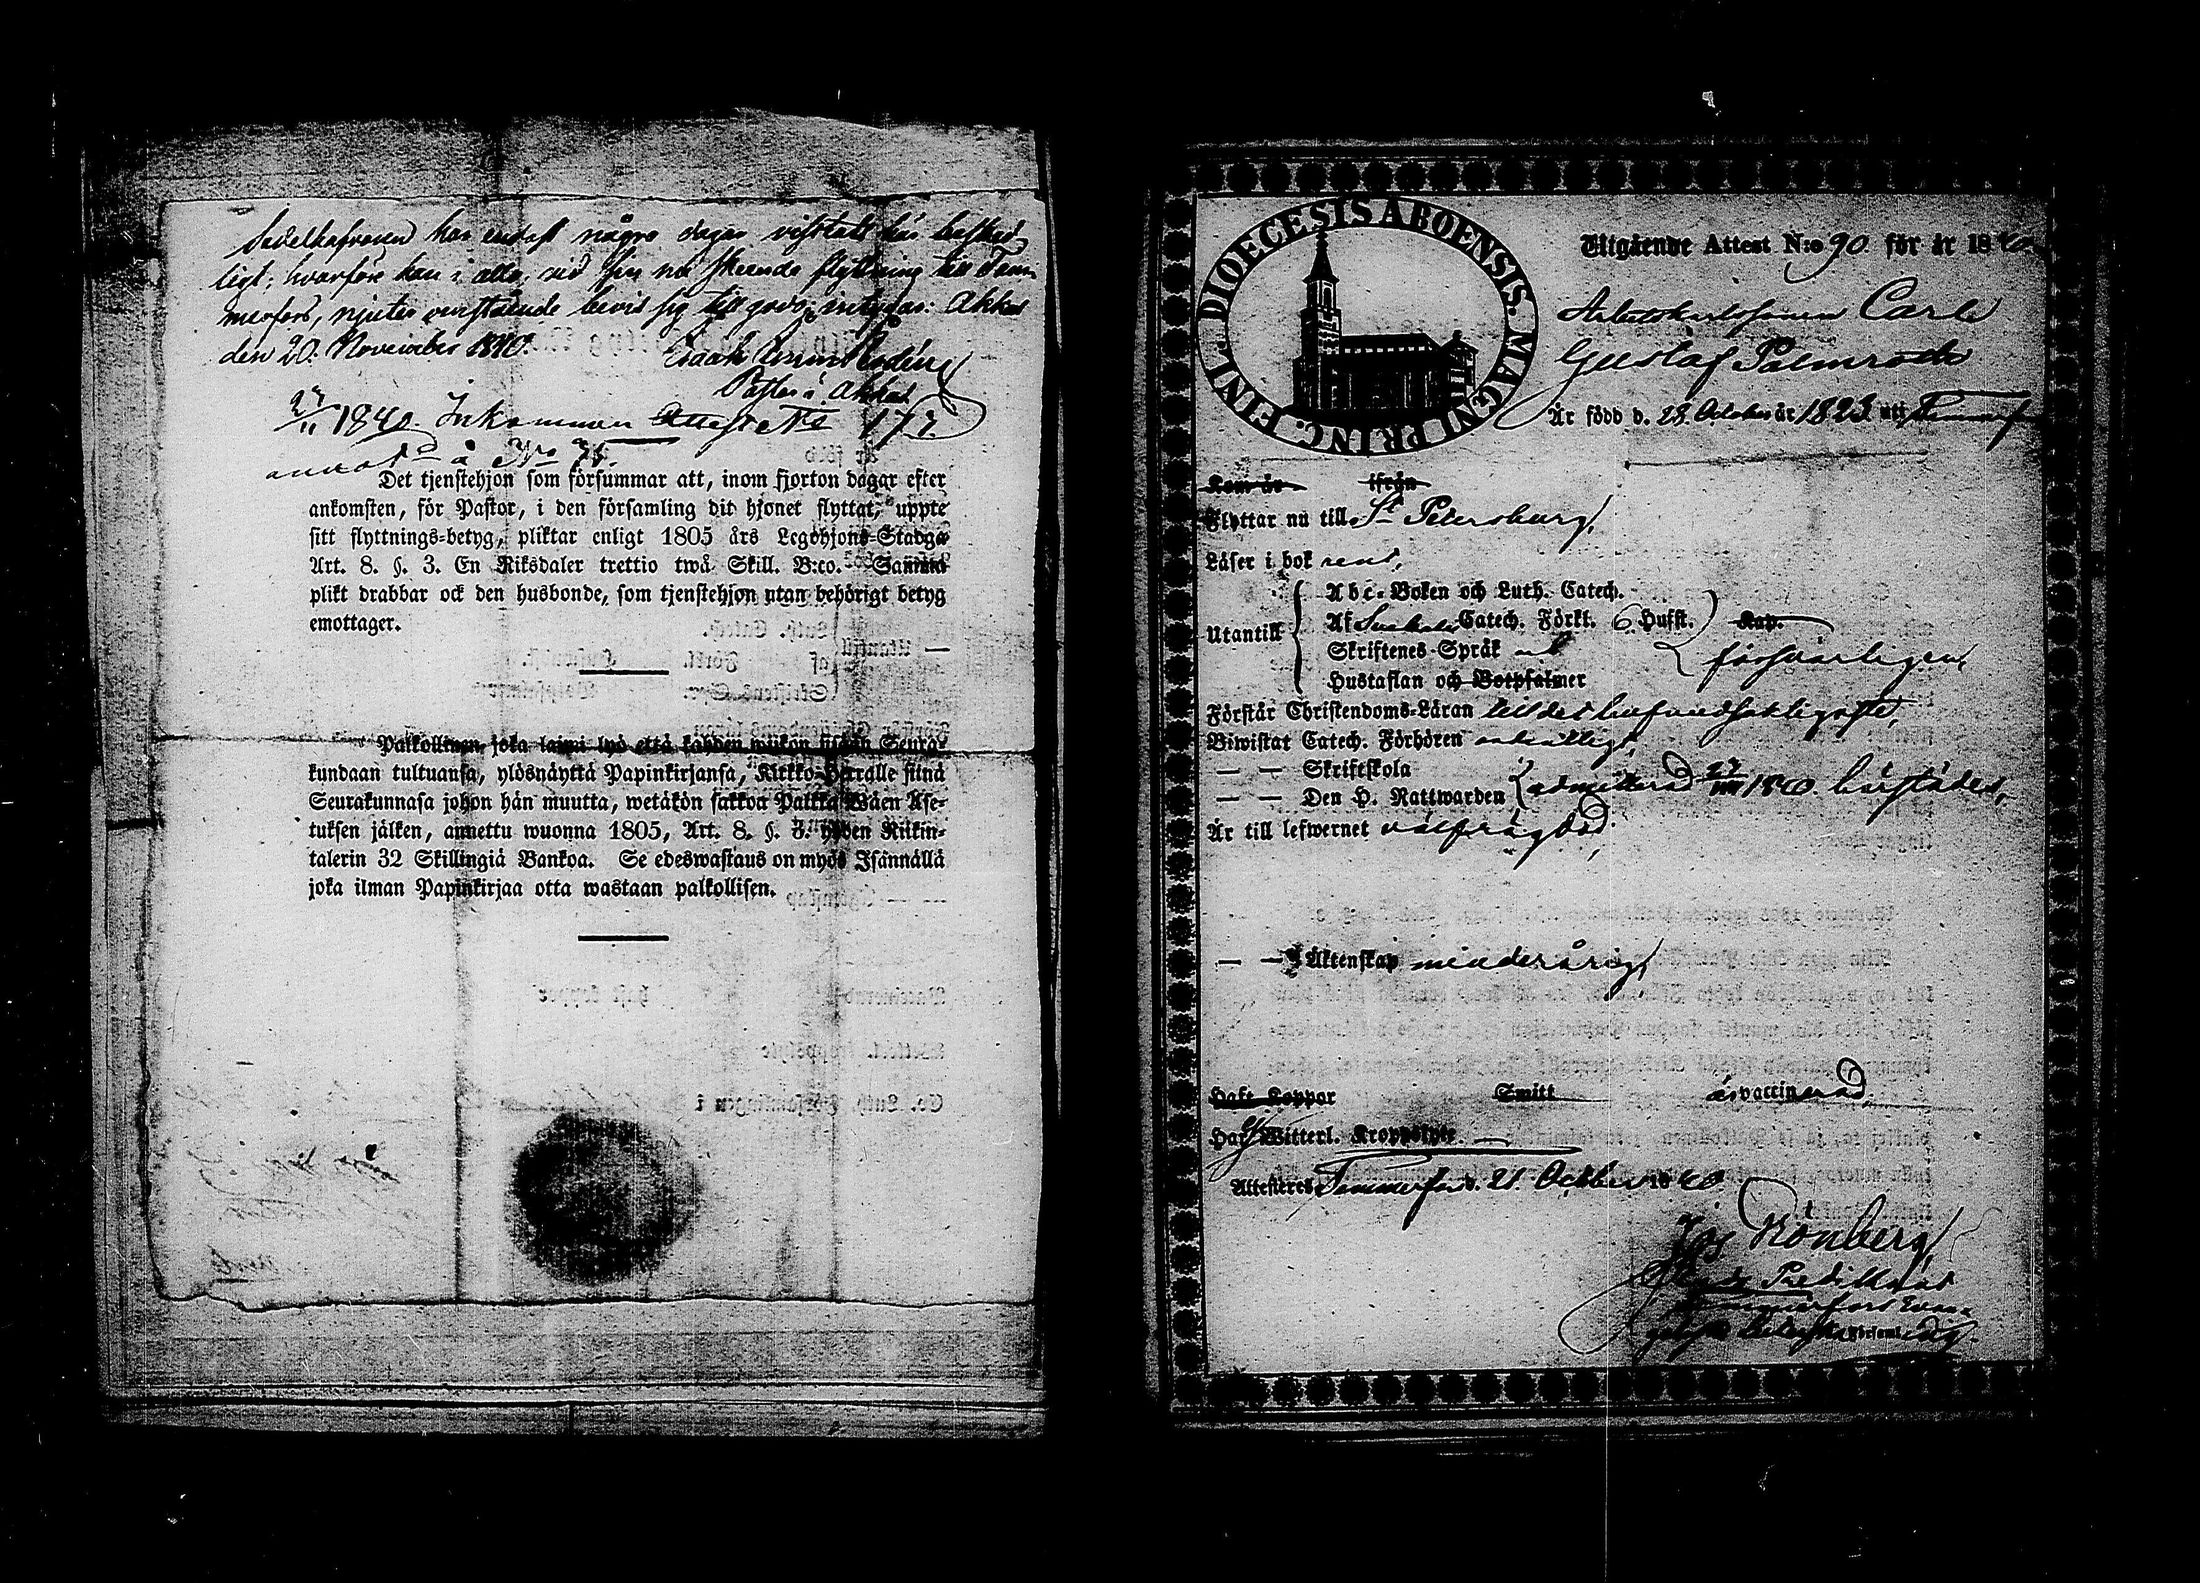 Sedelhafvaren har endast några dagar vistats här beskedligt; hvarföre han i allo, vid sin nu skeende flyttning till Tammerfors, njuter ofvanstående bevis sig till godo; intygar: Akkas
den 20. November 1840.
Pastor i Akkas
27/11 1840. Inkommen Attest No 177.
Det tjenstehjon som försummar att, inom fjorton dagar efter
ankomsten, för Pastor, i den församling dit hjonet flyttat, uppte
sitt flyttnings=betyg, pliktar enligt 1805 års Legohjons=Stadga
Art. 8. §. 3. En Riksdaler trettio twå Skill. B:co. Samma
plikt drabbar ock den husbonde, som tjenstehjon utan behörigt betyg
emottager.
Palkollinen, joka laimi lyö että kahden wiikon sisään Seura=
kundaan tultuansa, ylösnäyttä Papinkirjansa, Kirkko=Herralle siinä
Seurakunnasa johon hän muutta, wetäkön sakkoa Palkka Wäen Ase=
tuksen jälken, annettu wuonna 1805, Art. 8. §. 3. yhden Riikin=
talerin 32 Skillingiä Bankoa. Se edeswastaus on myös Isännällä
joka ilman Papinkirjaa otta wastaan palkollisen.
DIOECESIS ABOENSIS. MAGNI PRINC. FINL.
Utgående Attest N:o 90 för år 1840
Arbetskarlssonen Carl
Gustaf Palmroth
Är född d. 28. October år 1823 uti Tammerfors
Kom år ifrån
Flyttar nu till St Petersburg,
Läser i bok rent,
Abc=Boken och Luth. Catech.
Utantill Af Svebelii Catech. Förkl. 6 Hufst. Kap.
Skriftenes Språk försvarligen,
Hustaflan och Botpsalmer
Förstår Christendoms=Läran till det hufvudsakligaste,
Biwistat Catech. Förhören
— — Skriftskola
— — Den H. Nattwarden admitterad 1840. härstädes,
Är till lefwernet välfrägdad,
— — Äktenskap minderårig,
Haft Koppor Smitt är vaccinerad
Haft Witterl. Kroppslyte —
Attesteres Tammerfors d. 21. October 1840
Jos Rönberg